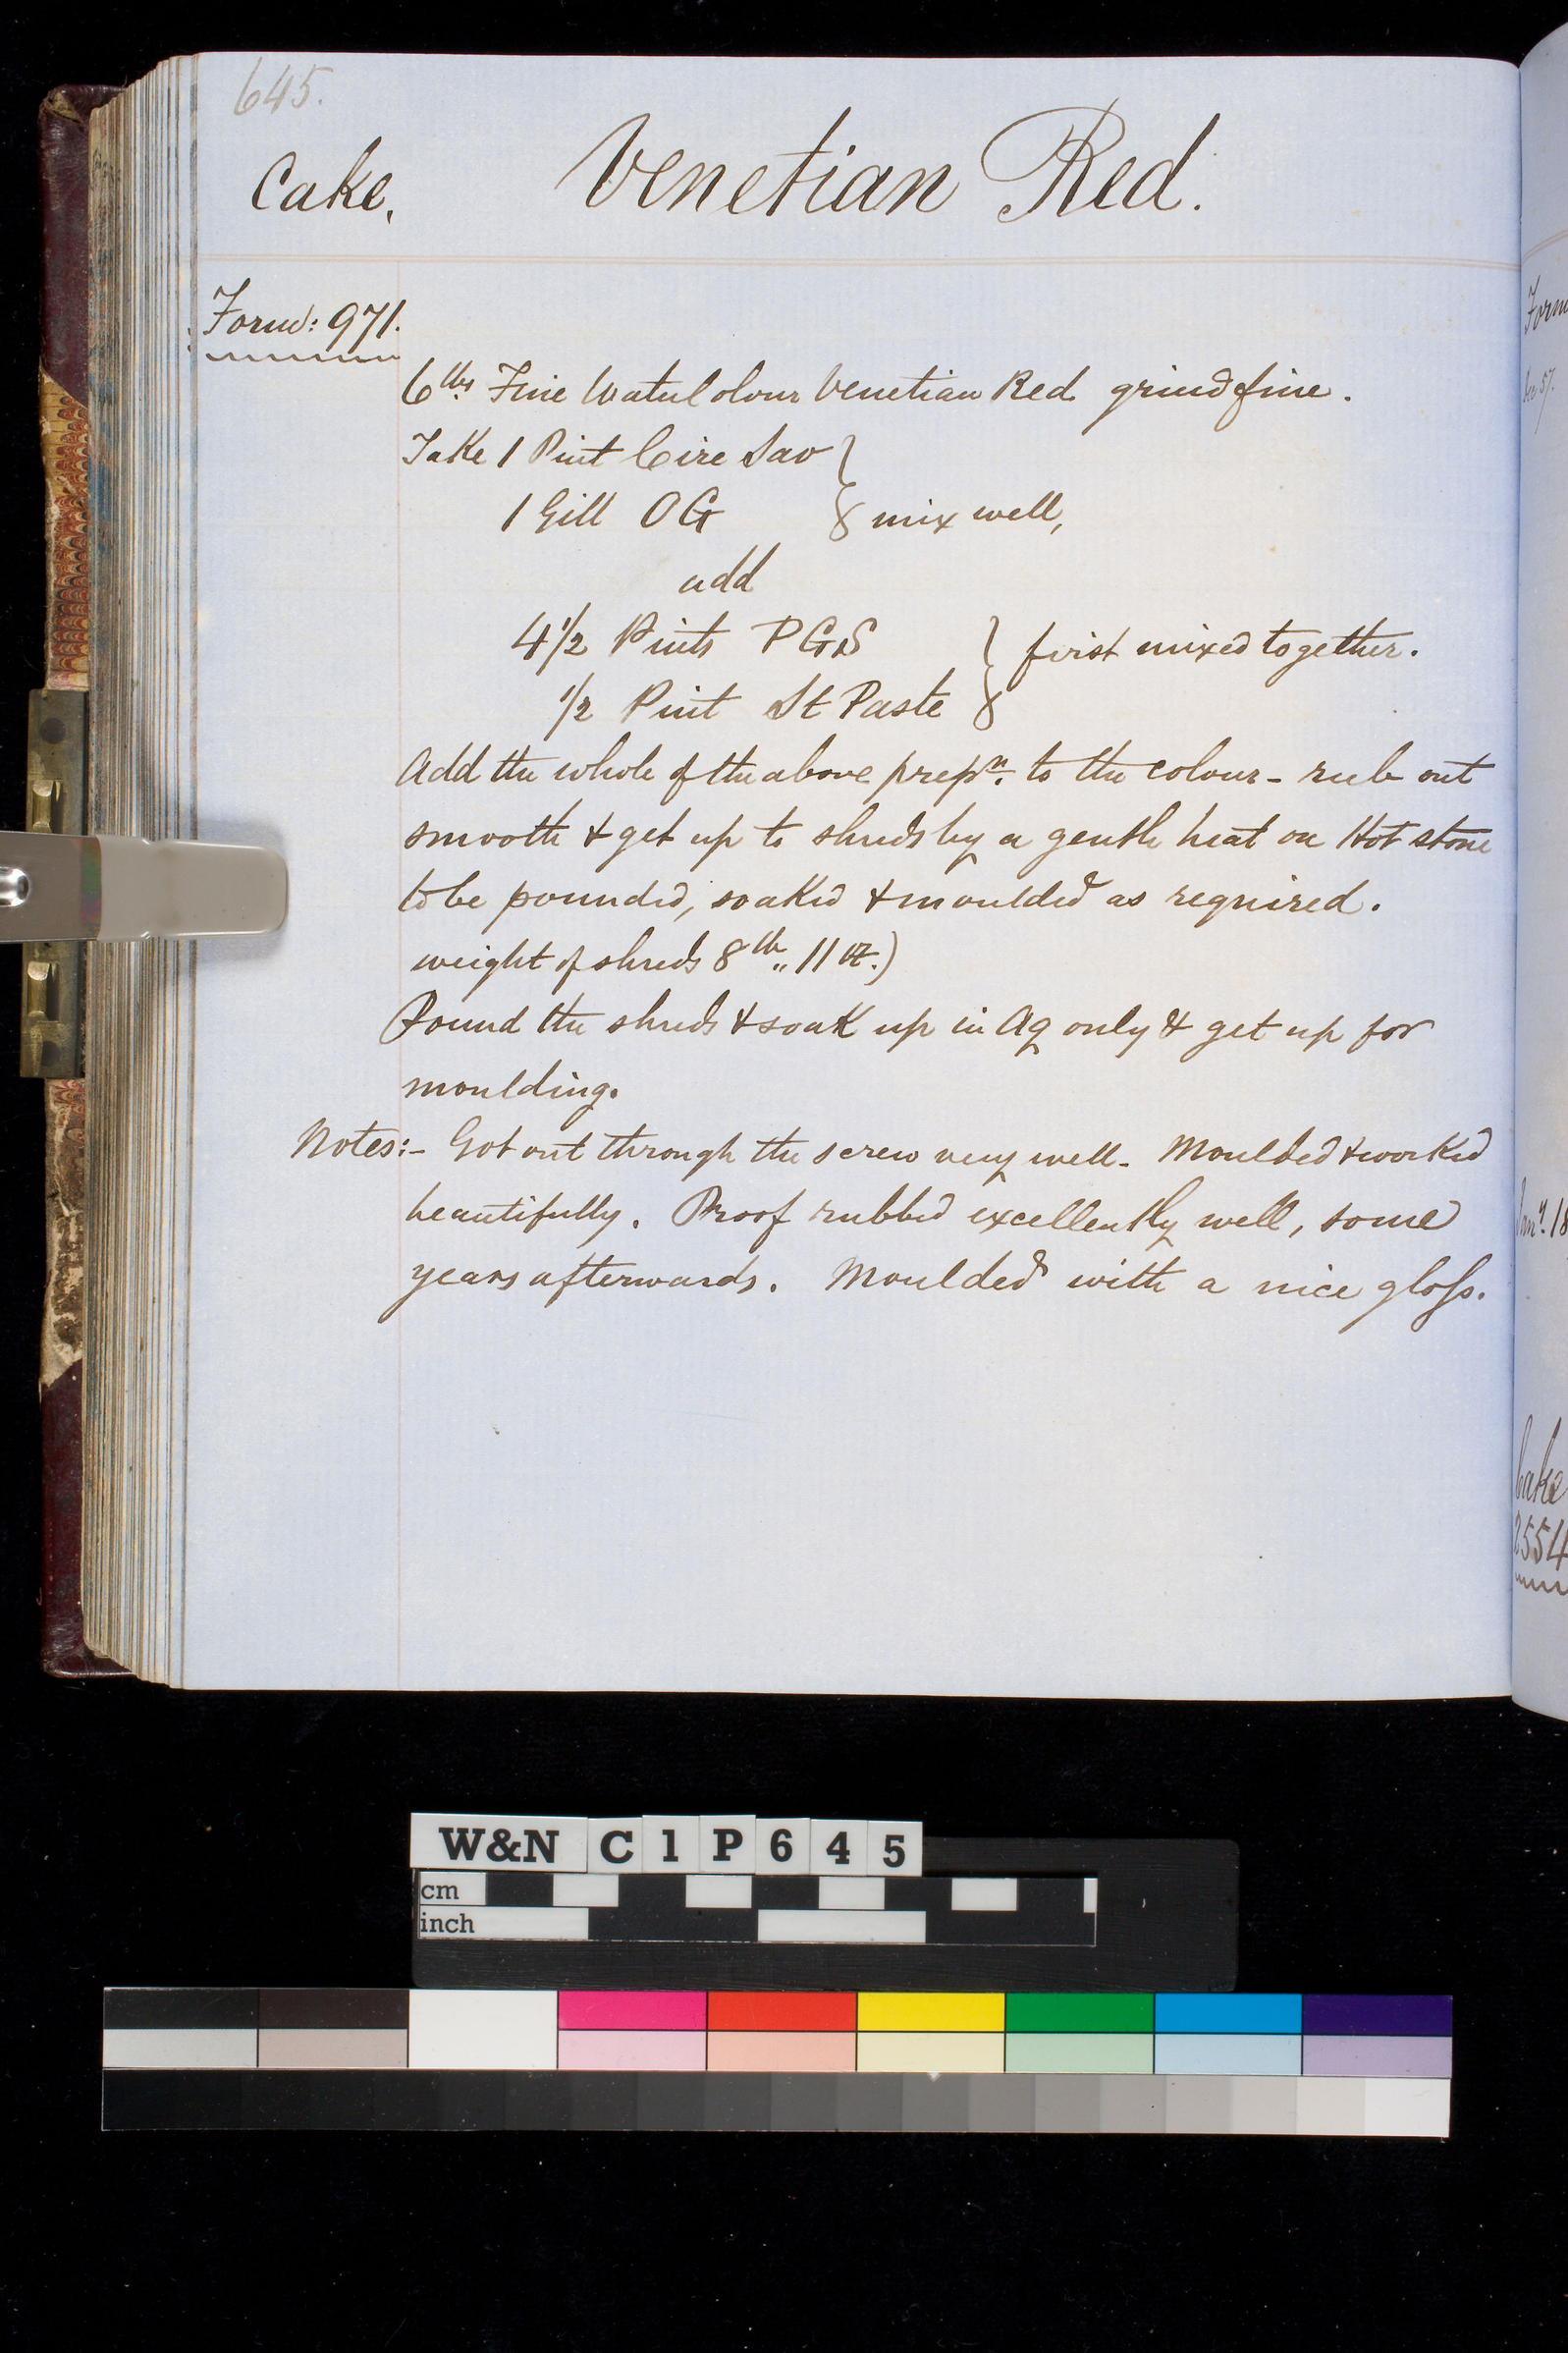 645.
Cake, Venetian Red.
Form: 971.
6 lbs Fine Water Colour Venetian Red grind fine.
Take 1 Pint Cire Sav
1 Gill O G } mix well,
add
4 1/2 Pints P G S } first mixed together.
1/2 Pint St Paste
Add the whole of the above prepn. to the colour - rub out
smooth & get up to shreds by a gentle heat on Hot stone
to be pounded, soaked & moulded as required.
weight of shreds 8 lb ,, 11 oz.)
Pound the shreds & soak up in Aq only & get up for
moulding.
Notes:- Got out through the screw very well - Moulded & worked
beautifully. Proof rubbed excellently well, some
years afterwards. Moulded with a nice gloss.
Form
Cake
2554
W&N C1P645
cm
inch